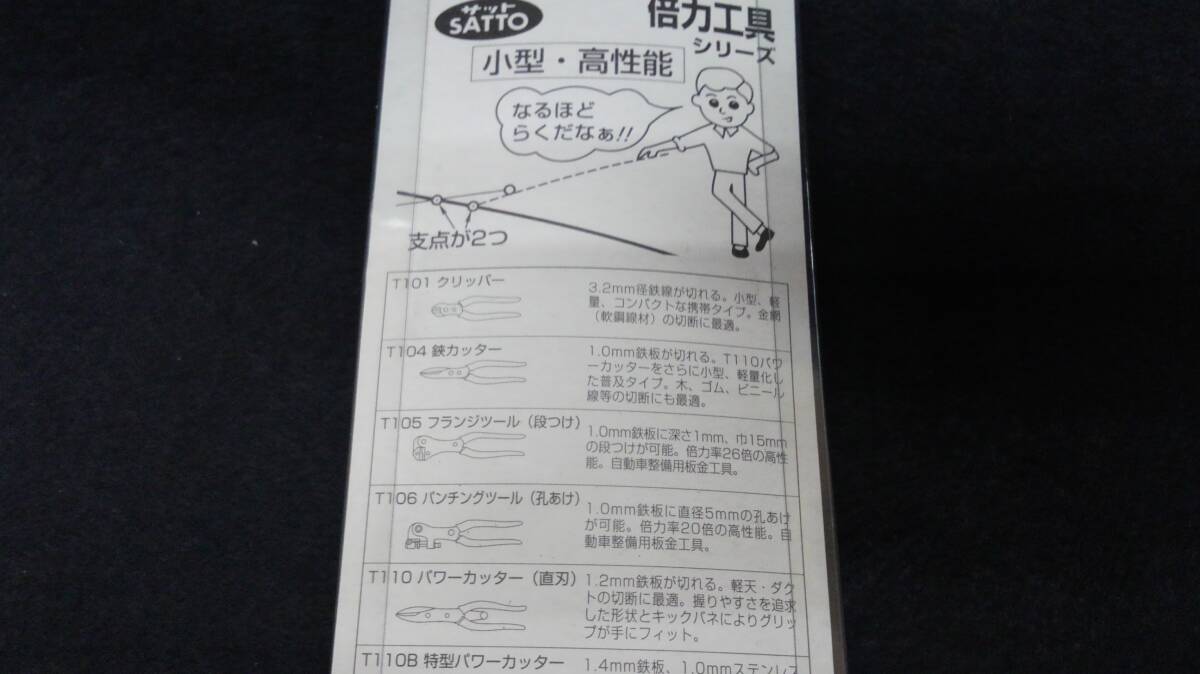 サット
SATTO
倍力工具
シリーズ
小型・高性能
なるほど
らくだなぁ!!
支点が2つ
T101 クリッパー
3.2mm径鉄線が切れる。小型、軽
量、コンパクトな携帯タイプ。金網
（軟鋼線材）の切断に最適。
T104 鋏カッター
1.0mm鉄板が切れる。T110パワ
ーカッターをさらに小型、軽量化し
た普及タイプ。木、ゴム、ビニール
線等の切断にも最適。
T105 フランジツール（段つけ）
1.0mm鉄板に深さ1mm、巾15mm
の段つけが可能。倍力率26倍の高性
能。自動車整備用板金工具。
T106 パンチングツール（孔あけ）
1.0mm鉄板に直径5mmの孔あけ
が可能。倍力率20倍の高性能。自
動車整備用板金工具。
T110 パワーカッター（直刃）
1.2mm鉄板が切れる。軽天・ダク
トの切断に最適。握りやすさを追求
した形状とキックバネによりグリッ
プが手にフィット。
T110B 特型パワーカッター
1.4mm鉄板、1.0mmステンレス